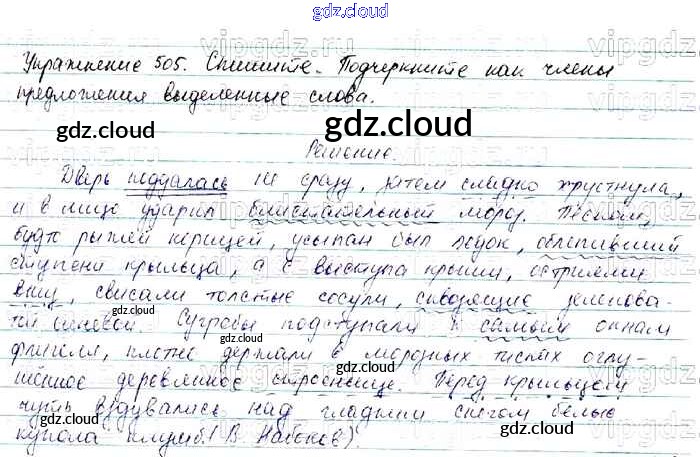 gdz.cloud
Упражнение 505. Спишите. Подчеркните как члены
предложения выделенные слова.
gdz.cloud
gdz.cloud
gdz.cloud
Решение.
Дверь подалась не сразу, затем сладко хрустнула,
и в лицо ударил блистательный мороз. Песком,
будто рыжей корицей, усыпан был ледок, облепивший
ступени крыльца, а с выступа крыши, остриями
вниз, свисали толстые сосули, сквозящие зеленова-
той синевой. Сугробы подступали к самым окнам
флигеля, плотно держали в морозных тисках оглу-
шённое деревянное строеньице. Перед крыльцом
чуть вздувались над гладким снегом белые
купола клумб. (В. Набоков)
gdz.cloud
gdz.cloud